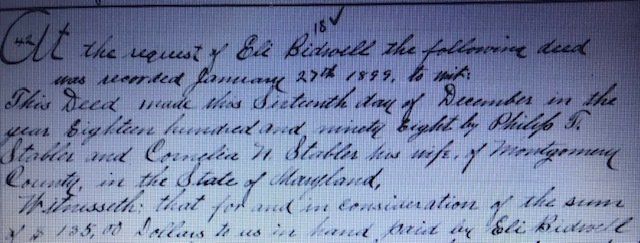 18 ✓
42 At the request of Eli Bidwell the following deed
was recorded January 27th 1899, to wit:
This Deed made this Sixteenth day of December in the
year Eighteen hundred and ninety Eight by Philip T.
Stabler and Cornelia N. Stabler his wife, of Montgomery
County, in the State of Maryland,
Witnesseth: that for and in consideration of the sum
of $ 135,00 Dollars to us in hand paid by Eli Bidwell